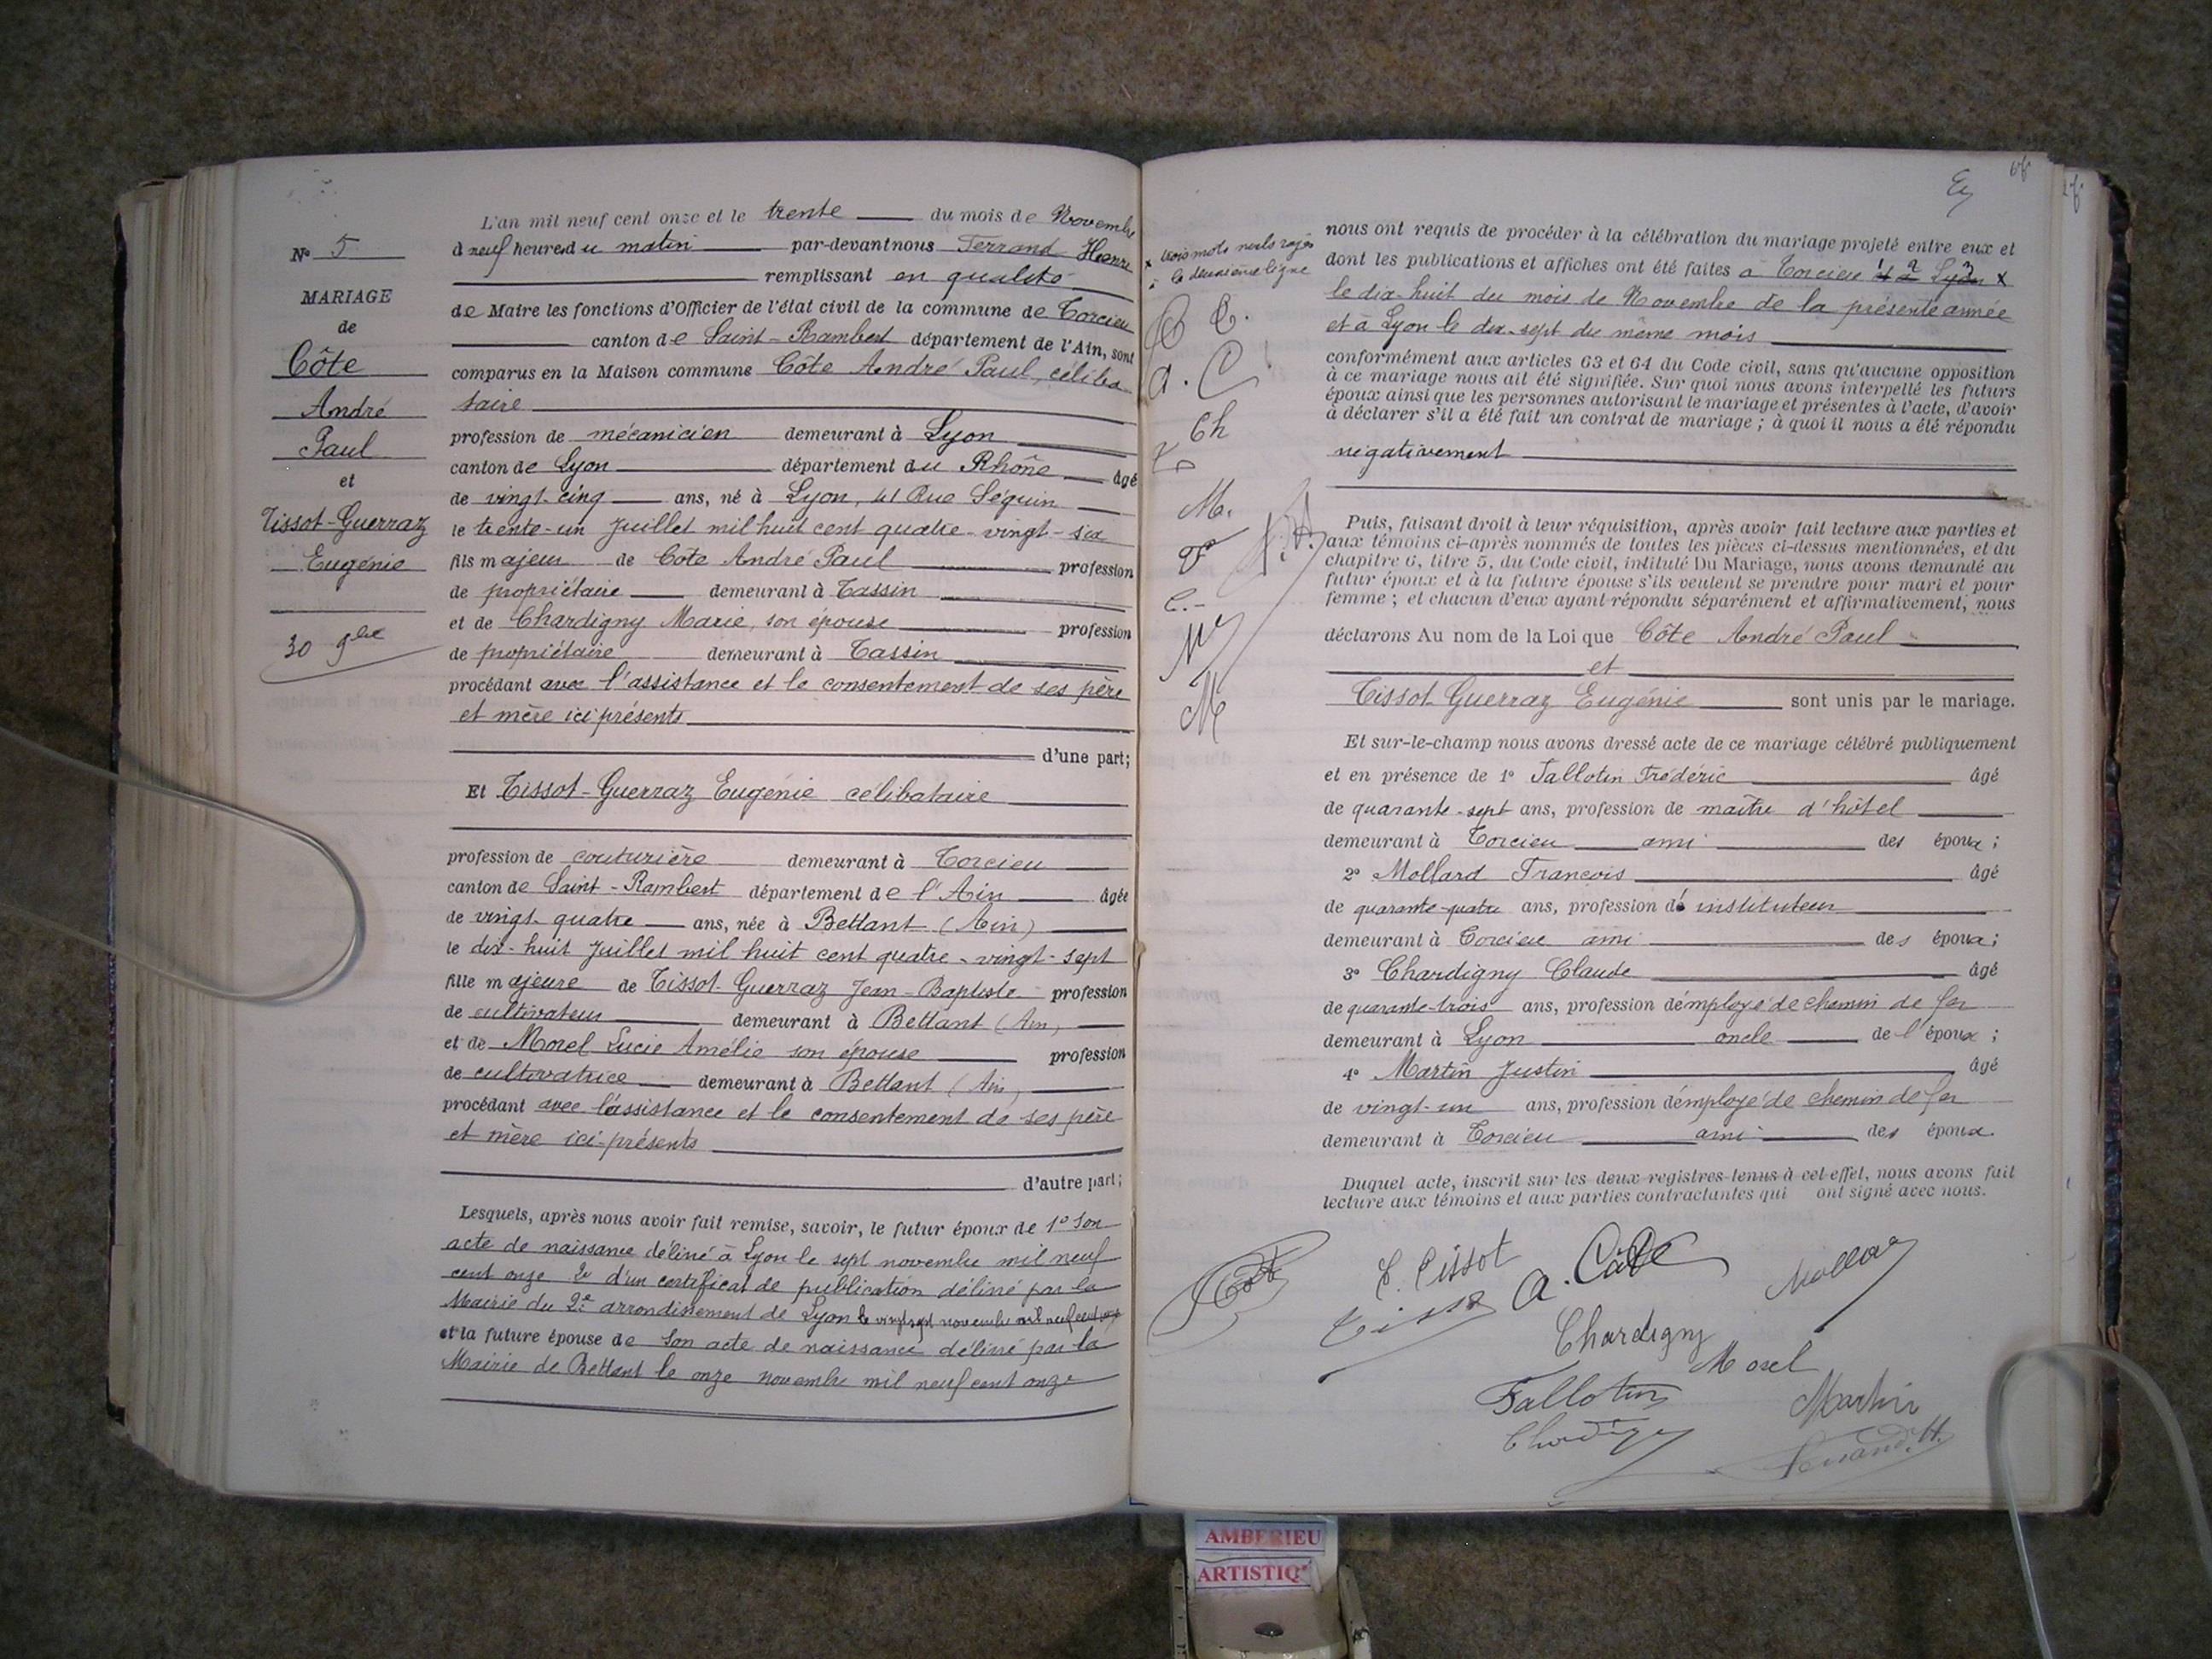 L'an mil neuf cent onze et le trente du mois de Novembre
à neuf heures du matin par-devant nous Ferrand Henri
remplissant en qualité
de Maire les fonctions d'Officier de l'état civil de la commune de Torcieu
canton de Saint-Rambert département de l'Ain, sont
comparus en la Maison commune Côte André Paul, céliba
taire
profession de mécanicien demeurant à Lyon
canton de Lyon département du Rhône âgé
de vingt-cinq ans, né à Lyon, 41 Rue Séguin
le trente-un Juillet mil huit cent quatre-vingt-six
fils majeur de Côte André Paul profession
de propriétaire demeurant à Tassin
et de Chardigny Marie, son épouse profession
de propriétaire demeurant à Tassin
procédant avec l'assistance et le consentement de ses père
et mère ici présents
d'une part;
Et Tissot-Guerraz Eugénie célibataire
profession de couturière demeurant à Torcieu
canton de Saint-Rambert département de l'Ain âgée
de vingt-quatre ans, née à Bettant (Ain)
le dix-huit Juillet mil huit cent quatre-vingt-sept
fille majeure de Tissot-Guerraz Jean-Baptiste profession
de cultivateur demeurant à Bettant (Ain)
et de Morel Lucie Amélie son épouse profession
de cultivatrice demeurant à Bettant (Ain)
procédant avec l'assistance et le consentement de ses père
et mère ici-présents
d'autre part;
Lesquels, après nous avoir fait remise, savoir, le futur époux de 1° Son
acte de naissance délivré à Lyon le sept novembre mil neuf
cent onze 2° d'un certificat de publication délivré par la
Mairie du 2e arrondissement de Lyon le vingt-sept novembre mil neuf cent onze
et la future épouse de Son acte de naissance délivré par la
Mairie de Bettant le onze novembre mil neuf cent onze
N° 5
MARIAGE
de
Côte
André
Paul
et
Tissot-Guerraz
Eugénie
30 9bre
nous ont requis de procéder à la célébration du mariage projeté entre eux et
dont les publications et affiches ont été faites à Torcieu 1 et à 2 Lyon 3 x
le dix-huit du mois de Novembre de la présente année
et à Lyon le dix-sept du même mois
conformément aux articles 63 et 64 du Code civil, sans qu'aucune opposition
à ce mariage nous ait été signifiée. Sur quoi nous avons interpellé les futurs
époux ainsi que les personnes autorisant le mariage et présentes à l'acte, d'avoir
à déclarer s'il a été fait un contrat de mariage ; à quoi il nous a été répondu
négativement
Puis, faisant droit à leur réquisition, après avoir fait lecture aux parties et
aux témoins ci-après nommés de toutes les pièces ci-dessus mentionnées, et du
chapitre 6, titre 5, du Code civil, intitulé Du Mariage, nous avons demandé au
futur époux et à la future épouse s'ils veulent se prendre pour mari et pour
femme ; et chacun d'eux ayant répondu séparément et affirmativement, nous
déclarons Au nom de la Loi que Côte André Paul
et
Tissot Guerraz Eugénie sont unis par le mariage.
Et sur-le-champ nous avons dressé acte de ce mariage célébré publiquement
et en présence de 1° Fallotin Frédéric âgé
de quarante-sept ans, profession de maître d'hôtel
demeurant à Torcieu ami des époux ;
2° Mollard François âgé
de quarante-quatre ans, profession d' instituteur
demeurant à Torcieu ami des époux ;
3° Chardigny Claude âgé
de quarante-trois ans, profession d'employé de chemin de fer
demeurant à Lyon oncle de l'époux ;
4° Martin Justin âgé
de vingt-un ans, profession d'employé de chemin de fer
demeurant à Torcieu ami des époux
Duquel acte, inscrit sur les deux registres tenus à cet effet, nous avons fait
lecture aux témoins et aux parties contractantes qui ont signé avec nous.
x trois mots nuls rayés
à la deuxième ligne
C.
a. C
Ch
M.
M
E. Tissot
A. Côte
Mollard
Tissot
Chardigny
Morel
Fallotin
Martin
Chardigny
Ferrand. H.
AMBERIEU
ARTISTIQ